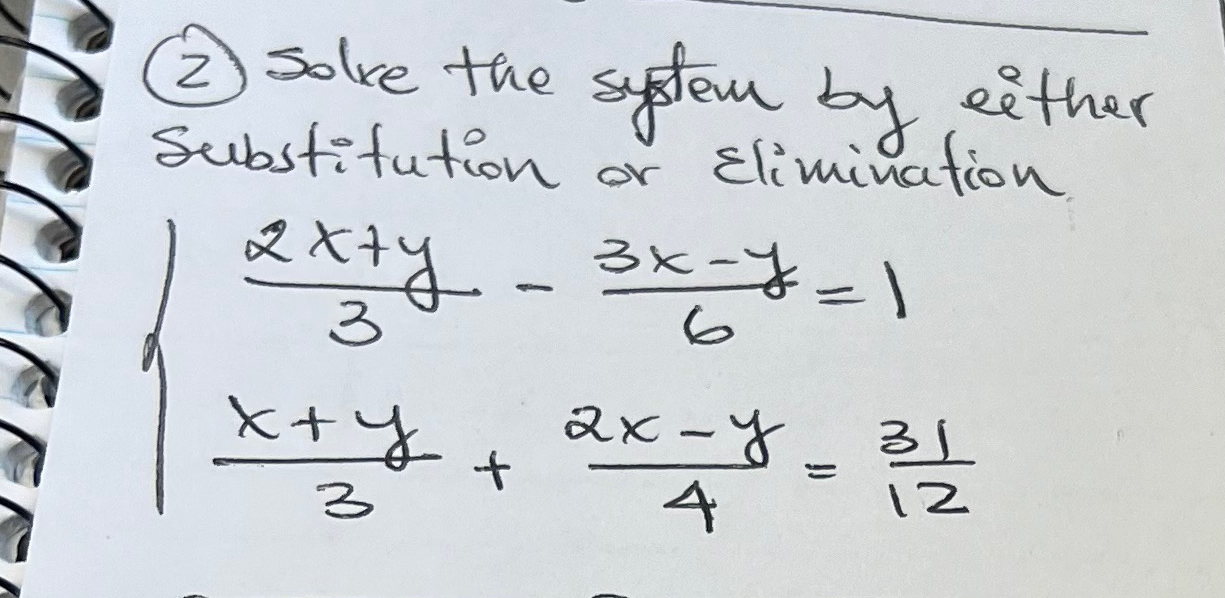 ② Solve the system by either
Substitution or Elimination
(2x+y)/3 - (3x-y)/6 = 1
(x+y)/3 + (2x-y)/4 = 31/12